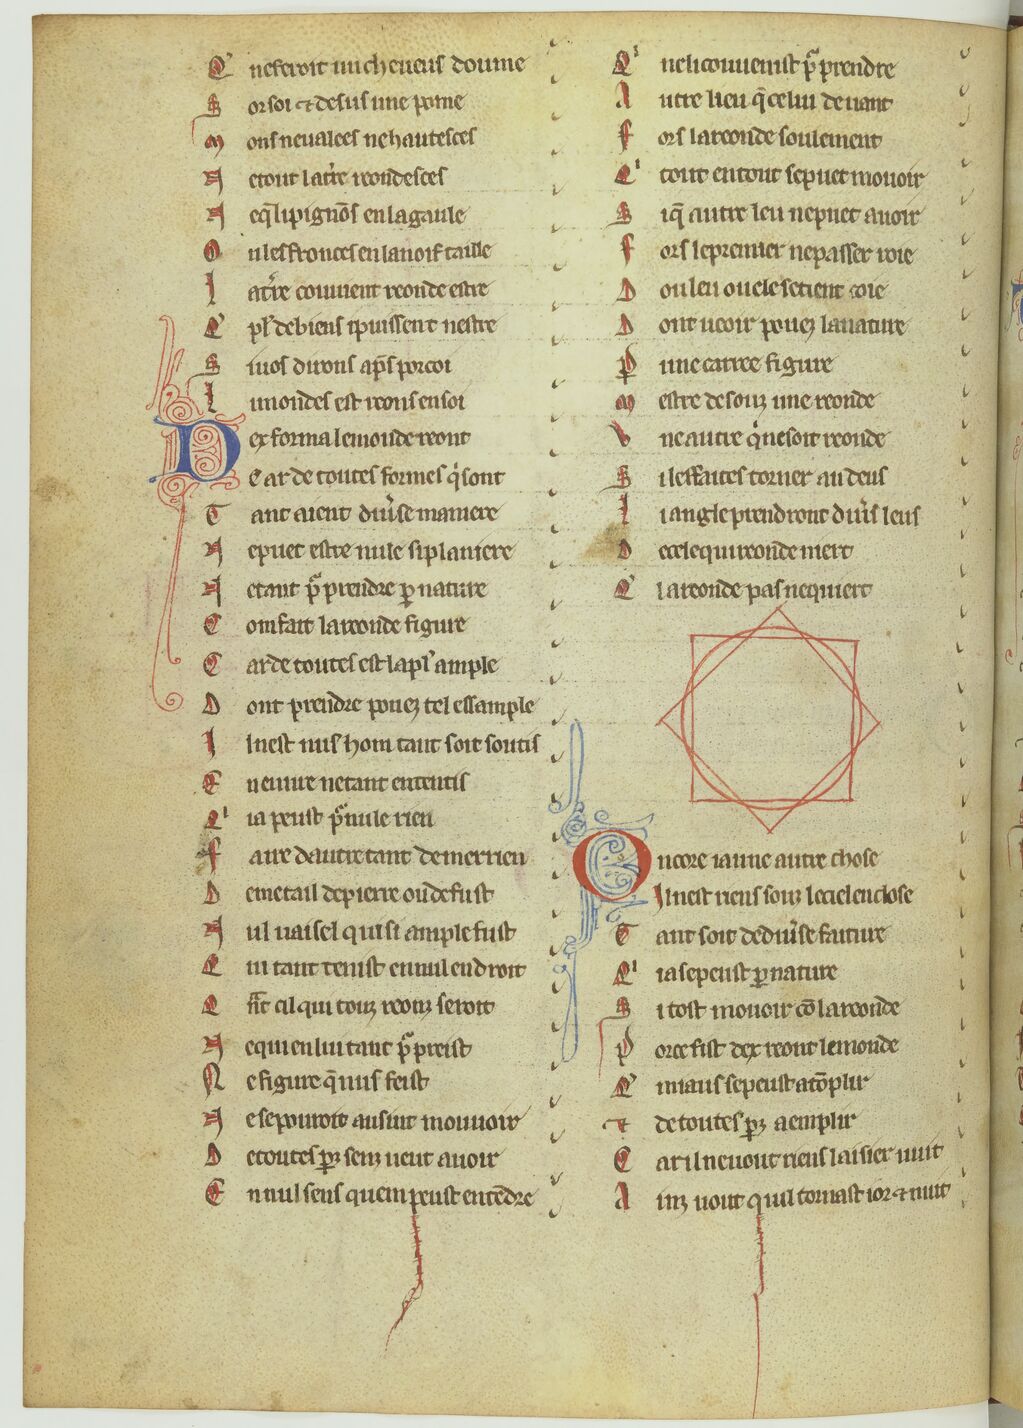 Q' ne feroit un cheveus d'oume
Sor soi et desus une pome
Mons ne valees ne hautesces
Ne tout la t're reondesces
Ne q̄ li pignōs en la gaule
Ou les frouces en la noif taille
La t're couvient reonde estre
Q' pl' de biens i puissent nestre
Si vos dirons ap's por coi
Li mondes est reons en soi
Dex forma le monde reont
Car de toutes formes q'i sont
Tant aient div'se maniere
Ne puet estre nule si planiere
Ne tant p̄ prendre p nature
Com fait la reonde figure
Car de toutes est la pl' ample
Dont prendre pouez tel essample
Il n'est nus hom tant soit soutis
En euvre ne tant ententis
Qui ia peust p̄ nule rien
Faire d'autretant de merrien
De metail de pierre ou de fust
Nul vaisel qui si ample fust
Qui tant tenist en nul endroit
Q̄nt cil qui touz reonz seroit
Ne qui en lui tant p̄ preist
Ne figure q̄ nus feist
Ne se pouroit ausint mouvoir
De toutes parz senz veut avoir
En nul sens qu'em peust entēdre
Qi ne li couvenist p̄ prendre
Autre lieu q̄ celui devant
Fors la reonde soulement
Qi tout en tout se puet movoir
Si q̄ autre leu ne puet avoir
Fors le premier ne passer voie
Dou leu ou ele se tient coie
Dont veoir pouez la nature
P une carree figure
Mestre desouz une reonde
Une autre q'i ne soit reonde
Si les faites torner an deus
Li angle prendront div's leus
De cele qui reonde n'iert
Q' la reonde pas ne quiert
Oncore i a une autre chose
Il n'est riens souz le ciel enclose
Tant soit de div'se faiture
Qi ia se peust p nature
Si tost movoir cō la reonde
Por ce fist dex reont le monde
Q' miaus se peust acōplir
et de toutes parz aemplir
Car il ne vout riens laisier vuit
Ainz vout qu'il tornast ior et nuit